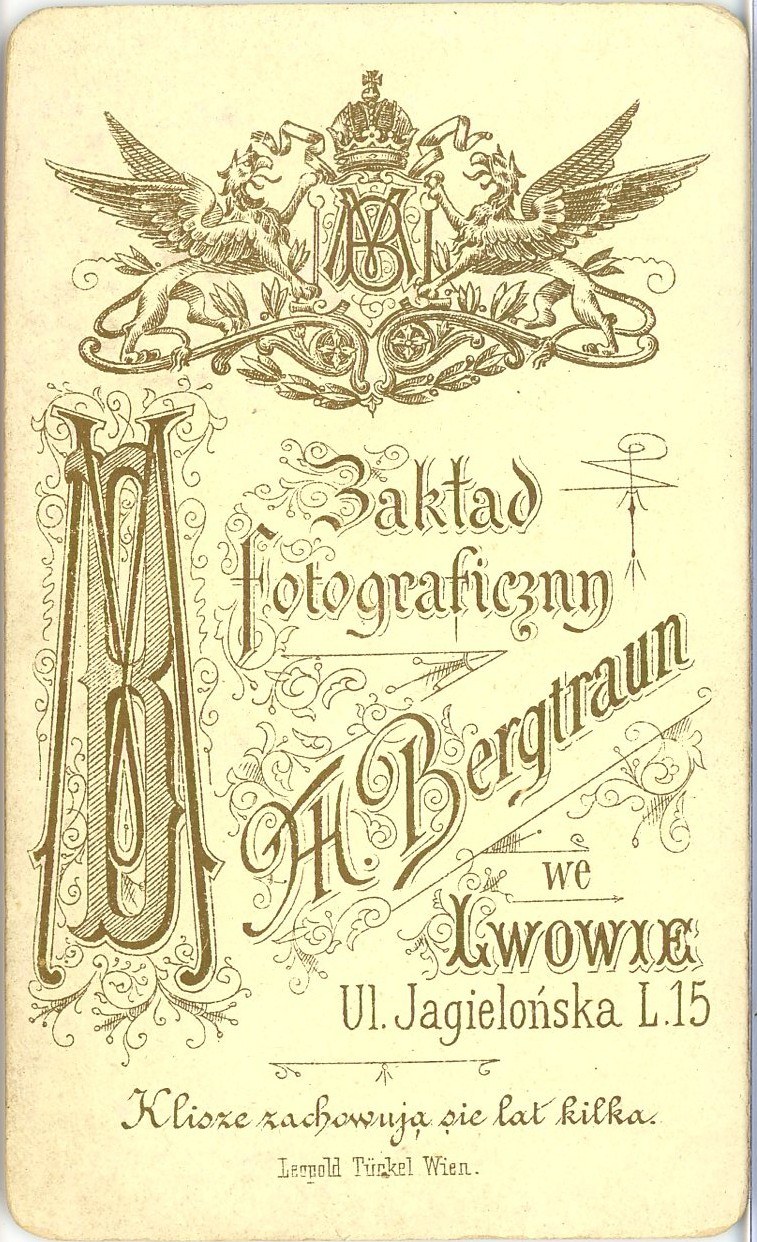 Zakład
fotograficzny
M. Bergtraun
we
LWOWIE
Ul. Jagielońska L.15
Klisze zachowują się lat kilka.
Leopold Türkel Wien.